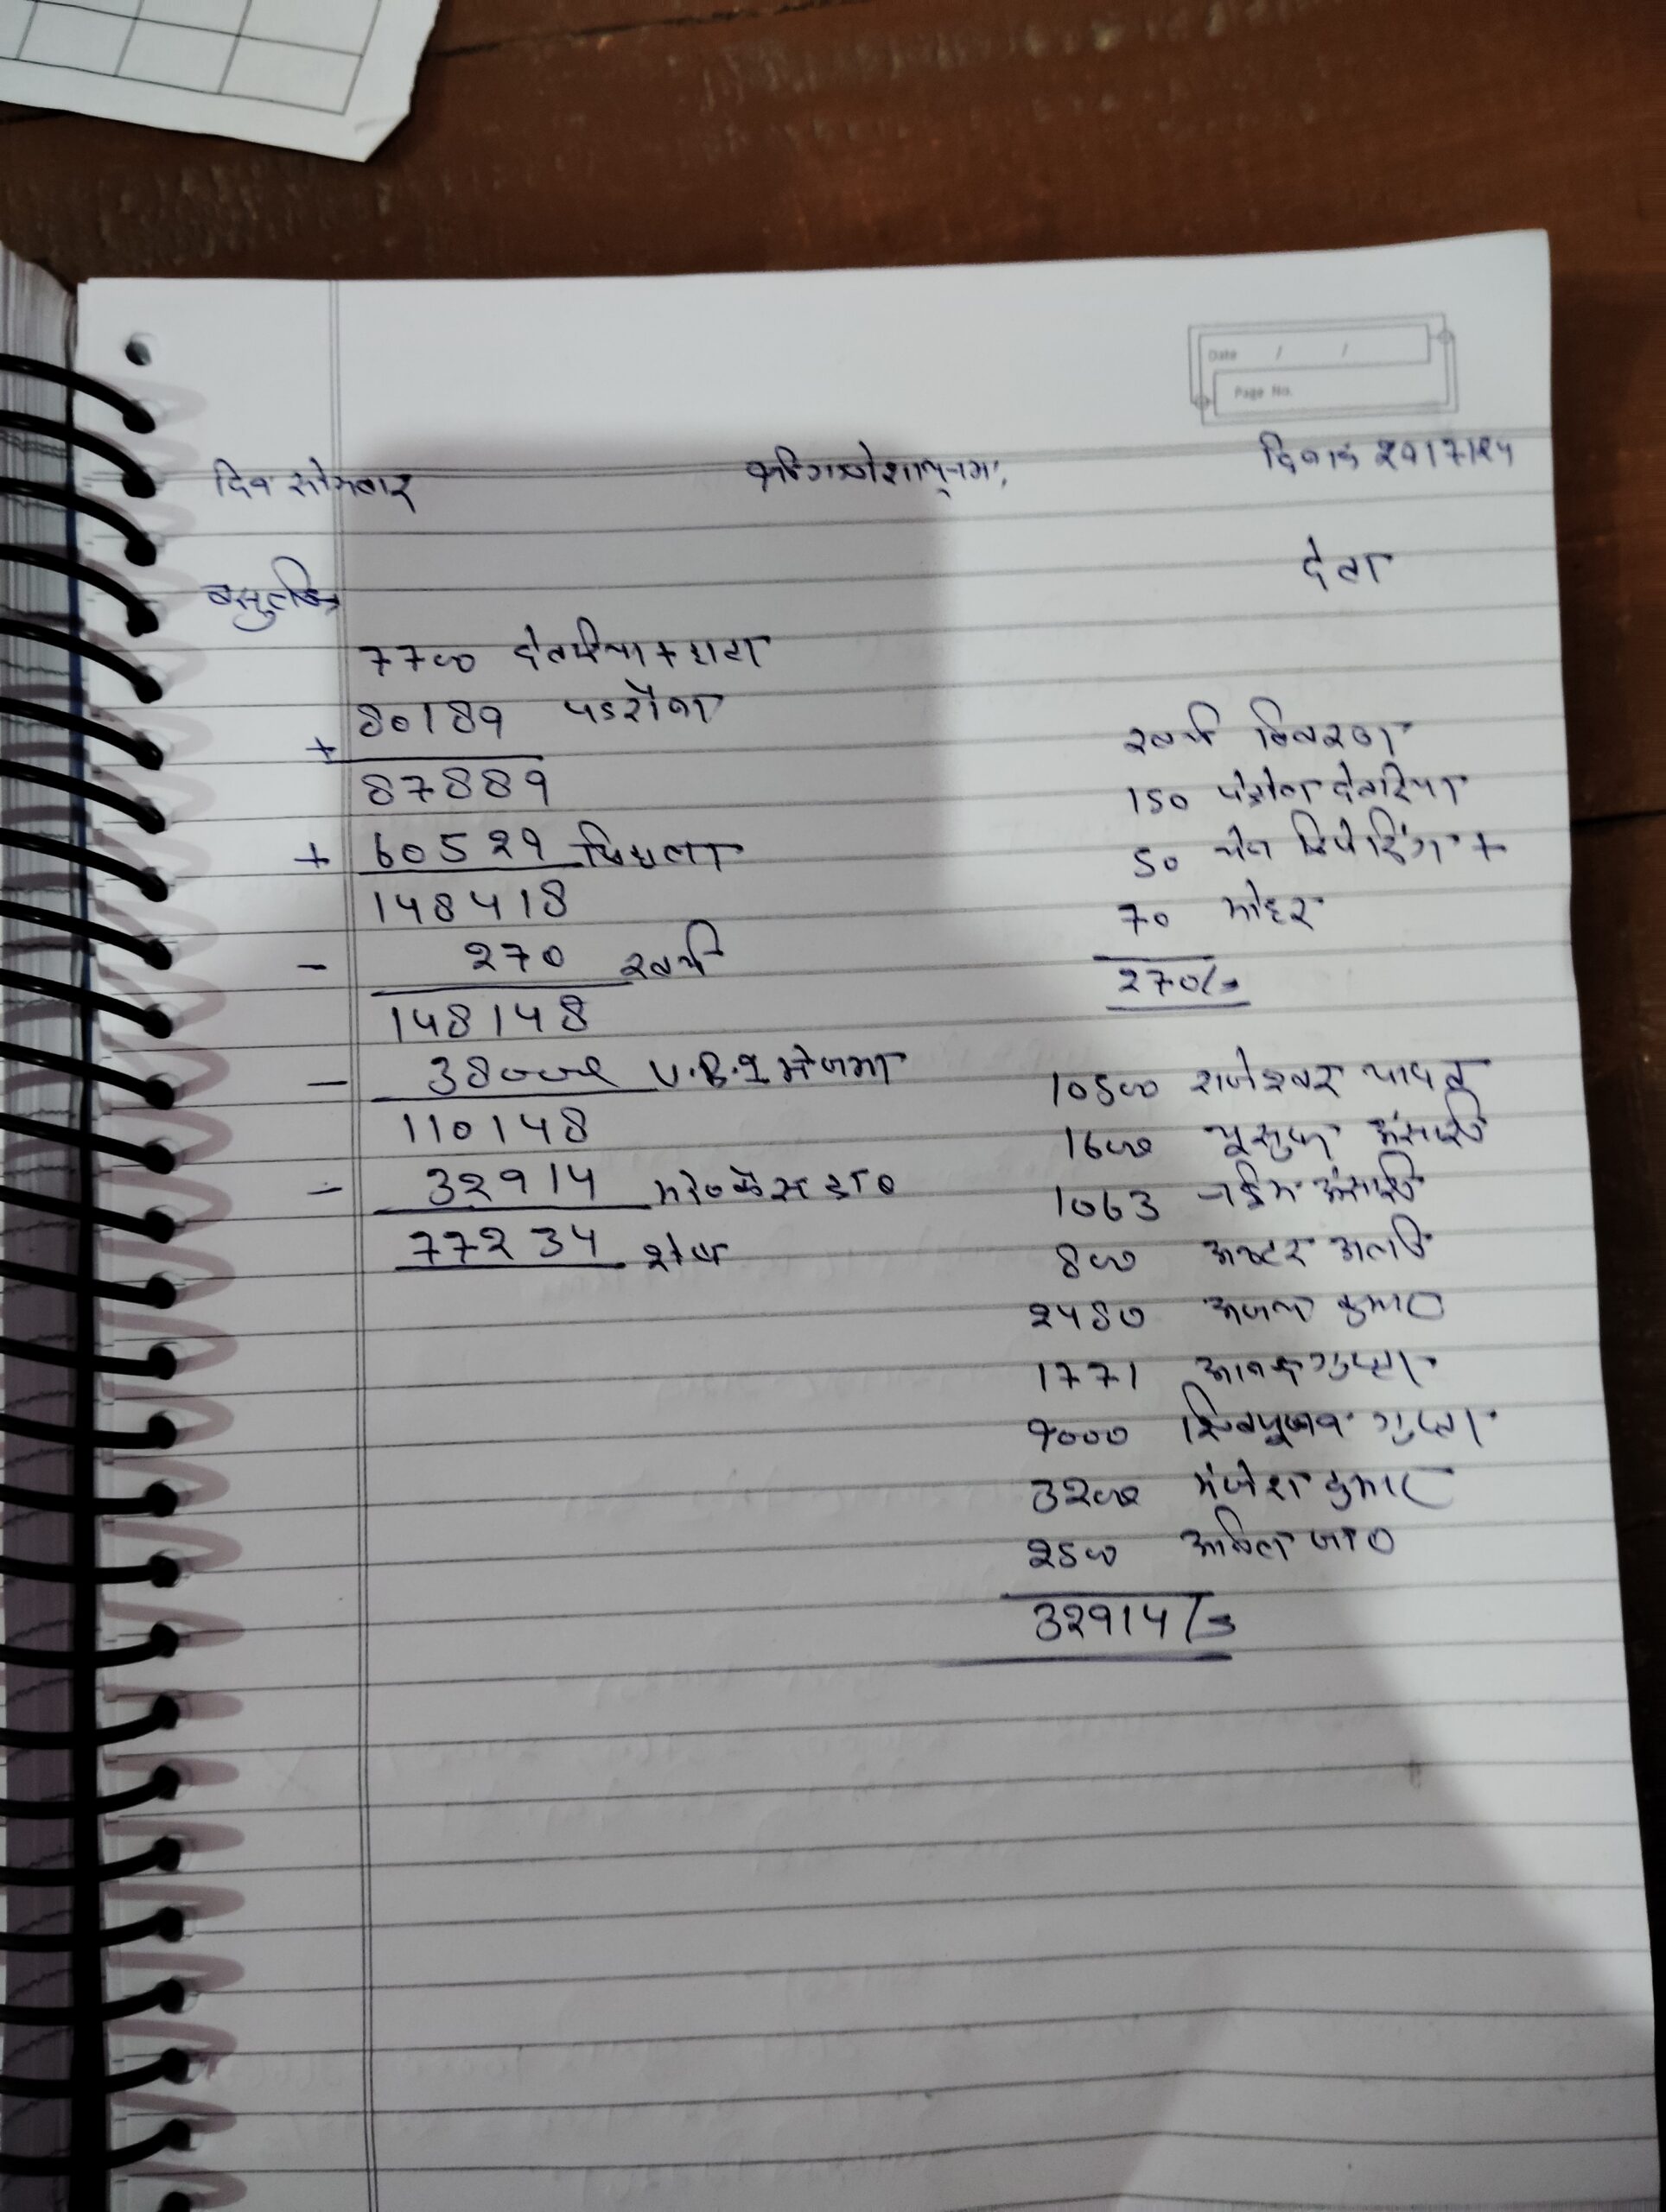 Date / /
Page No.
दिन सोमवार श्री गणेशाय नमः दिनांक 29/7/24
वसुली देना
7700 देवरिया + हाटा
80189 पडरौना
+
87889
+ 60529 पिछला
148418
- 270 खर्च
148148
- 38000 U.B.I में जमा
110148
- 32914
77234 शेष
खर्च विवरण
150 पेट्रोल देवरिया
50 +
70 मोहर
270/-
10500 राजेश्वर यादव
1600 युसुफ अंसारी
1063 अंसारी
800 अख्टर अली
2480 अजय कुमार
1771 आनन्द गुप्ता
9000 शिवपूजन गुप्ता
3200 मंजेश कुमार
2500
32914/-